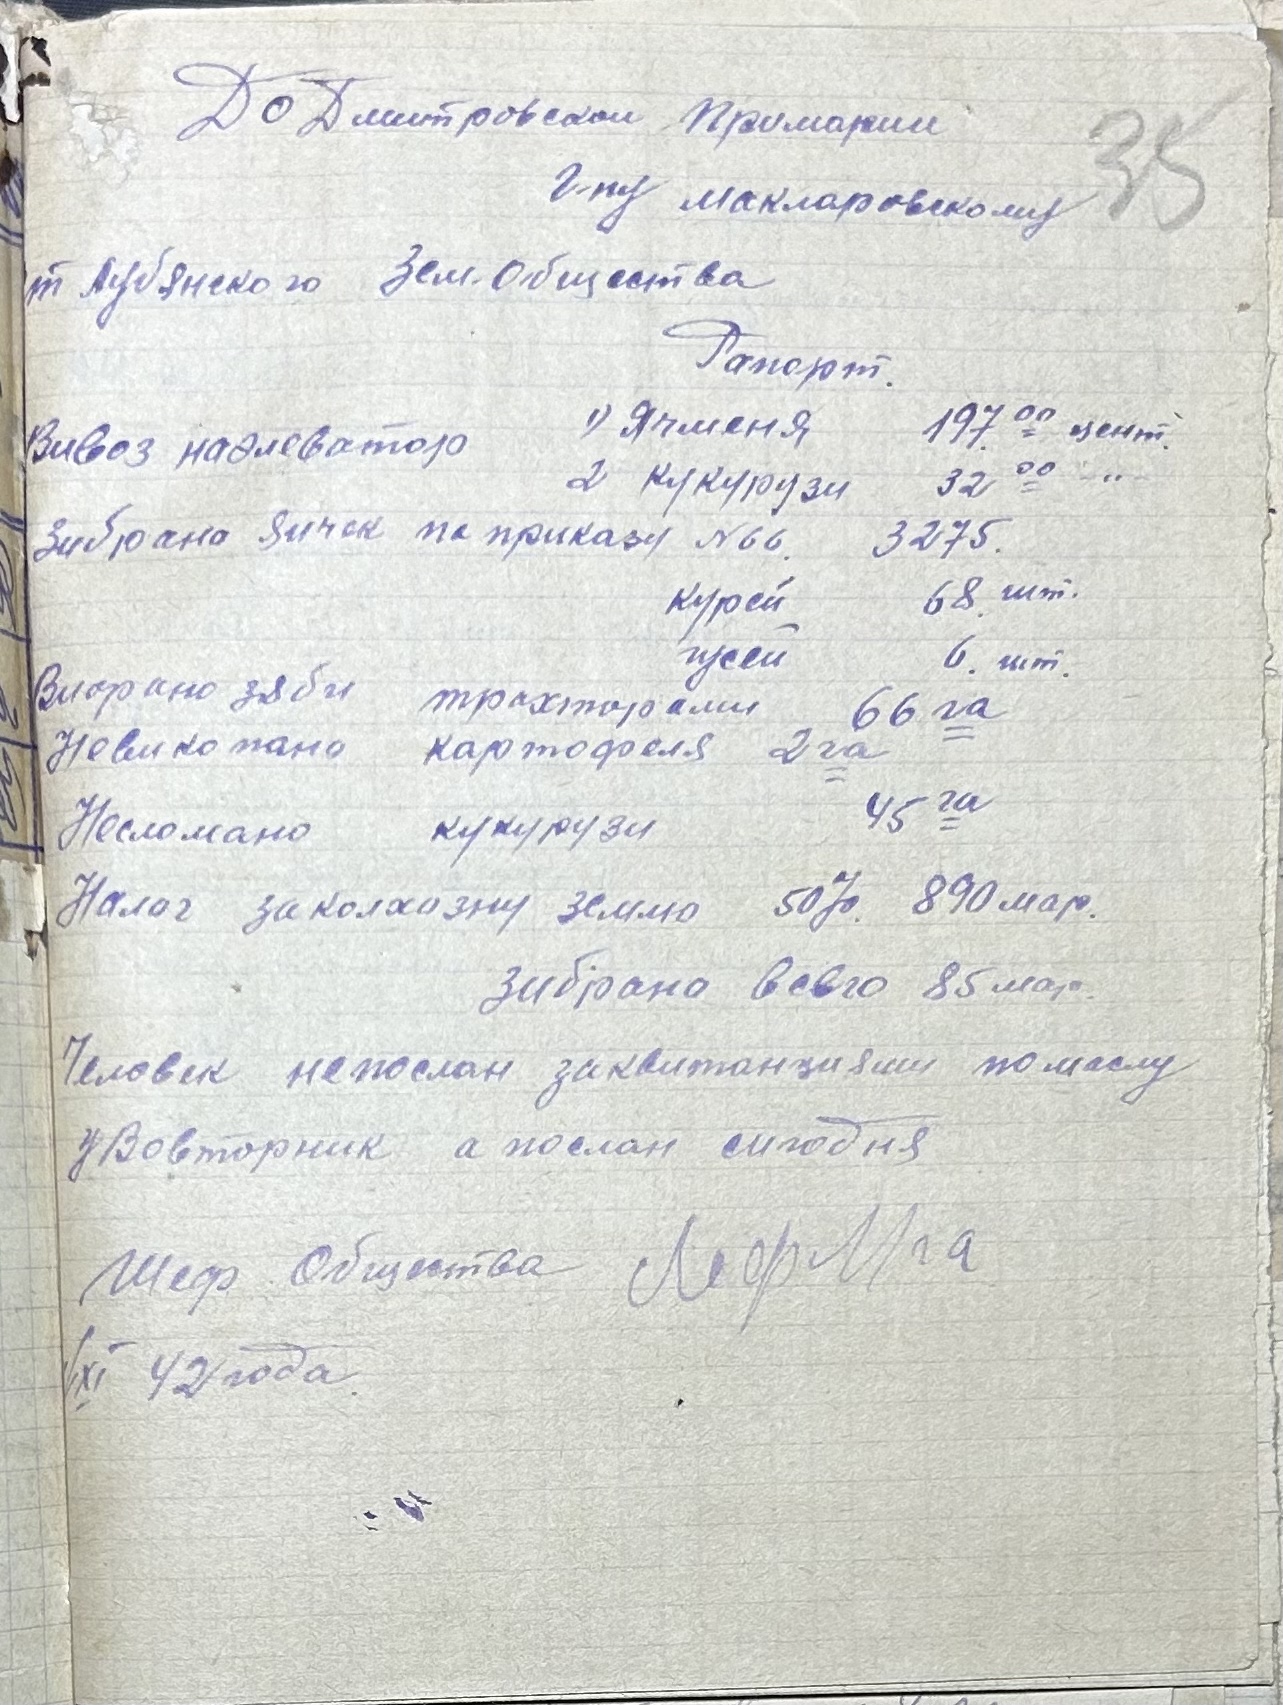 До Дмитровской Примарии
35
Г-ну Макларовскому
т Лубянского Зем. Общества
Рапорт.
Вивоз наэлеватор 1) Ячменя 197.00 цент.
2 кукурузи 32 00 -"-
Зибрано яичек по приказу N 66. 3275.
курей 68. шт.
гусей 6. шт.
Виорано зяби трахторами 66 га
Невикопано картофеля 2 га
Несломано кукурузи 45 га
Налог заколхозну землю 50%. 890 мар.
Зибрано всвго 85 мар.
Человек непослан заквитанциями помаслу
у Вовторник а послан сигодня
Шеф Общества
XI 42 года.